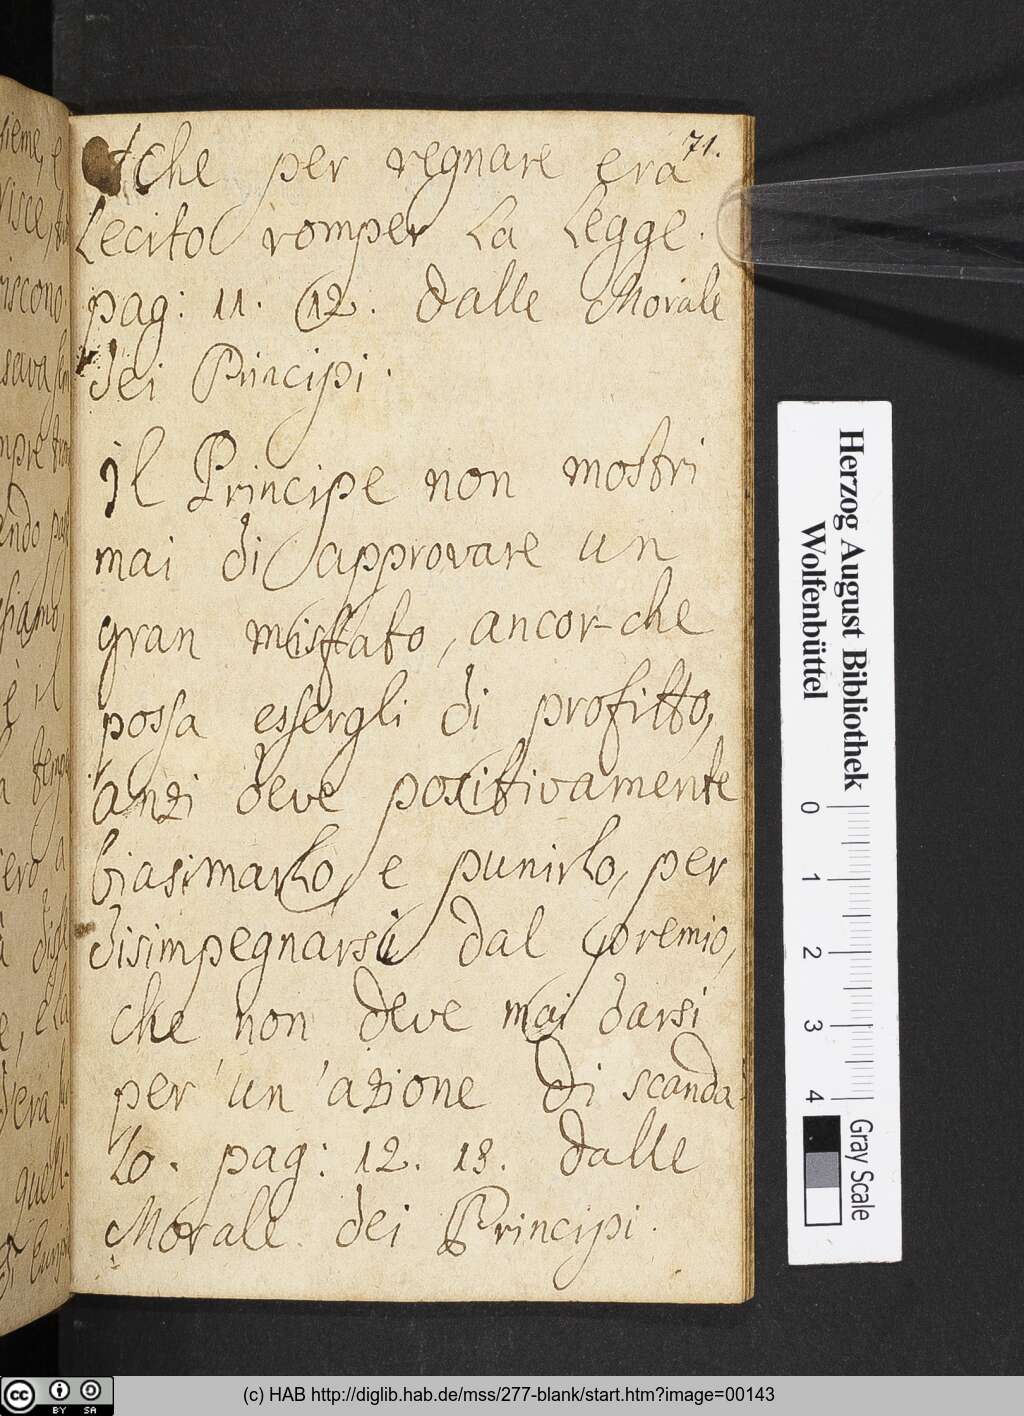 71.
che per regnare era
Lecito romper La Legge.
pag: 11. 12. dalle Morale
dei Principi.
il Principe non mostri
mai di approvare un
gran misfatto, ancor-che
possa essergli di profitto,
anzi deve positivamente
biasimarLo, e punirLo, per
disimpegnarsi dal premio,
che non deve mai darsi
per un' azione di scanda-
Lo. pag: 12. 13. dalle
Morale dei Principi.
Herzog August Bibliothek
Wolfenbüttel
0 1 2 3 4
Gray Scale
cc BY SA
(c) HAB http://diglib.hab.de/mss/277-blank/start.htm?image=00143